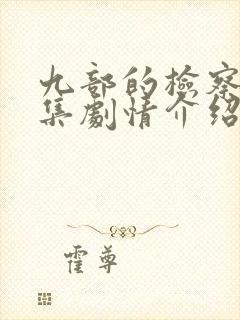 九部的检察
集剧情介绍
霍尊